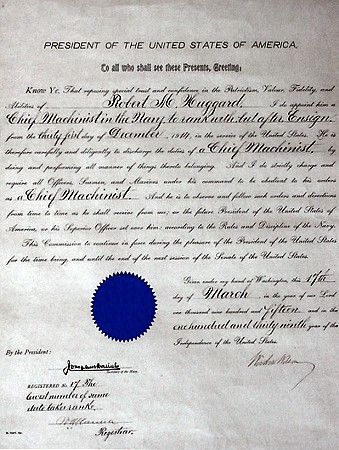 PRESIDENT OF THE UNITED STATES OF AMERICA.
To all who shall see these Presents, Greeting:
KNOW YE, That reposing special trust and confidence in the Patriotism, Valour, Fidelity, and
Abilities of Robert M. Huggard, I do appoint him
a Chief Machinist in the Navy to rank with but after Ensign
from the thirty first day of December, 1914, in the service of the United States. He is
therefore carefully and diligently to discharge the duties of a Chief Machinist, by
doing and performing all manner of things thereto belonging. And I do strictly charge and
require all Officers, Seamen, and Marines under his command to be obedient to his orders
as a Chief Machinist. And he is to observe and follow such orders and directions
from time to time as he shall receive from me, or the future President of the United States of
America, or his Superior Officer set over him; according to the Rules and Discipline of the Navy.
This Commission to continue in force during the pleasure of the President of the United States
for the time being, and until the end of the next session of the Senate of the United States.
Given under my hand at Washington, this 17th
day of March in the year of our Lord
one thousand nine hundred and fifteen and in the
one hundred and thirty ninth year of the
Independence of the United States.
By the President:
Josephus Daniels
Secretary of the Navy.
Woodrow Wilson
REGISTERED No. 17. The
lowest number of same
date takes rank.
Registrar.